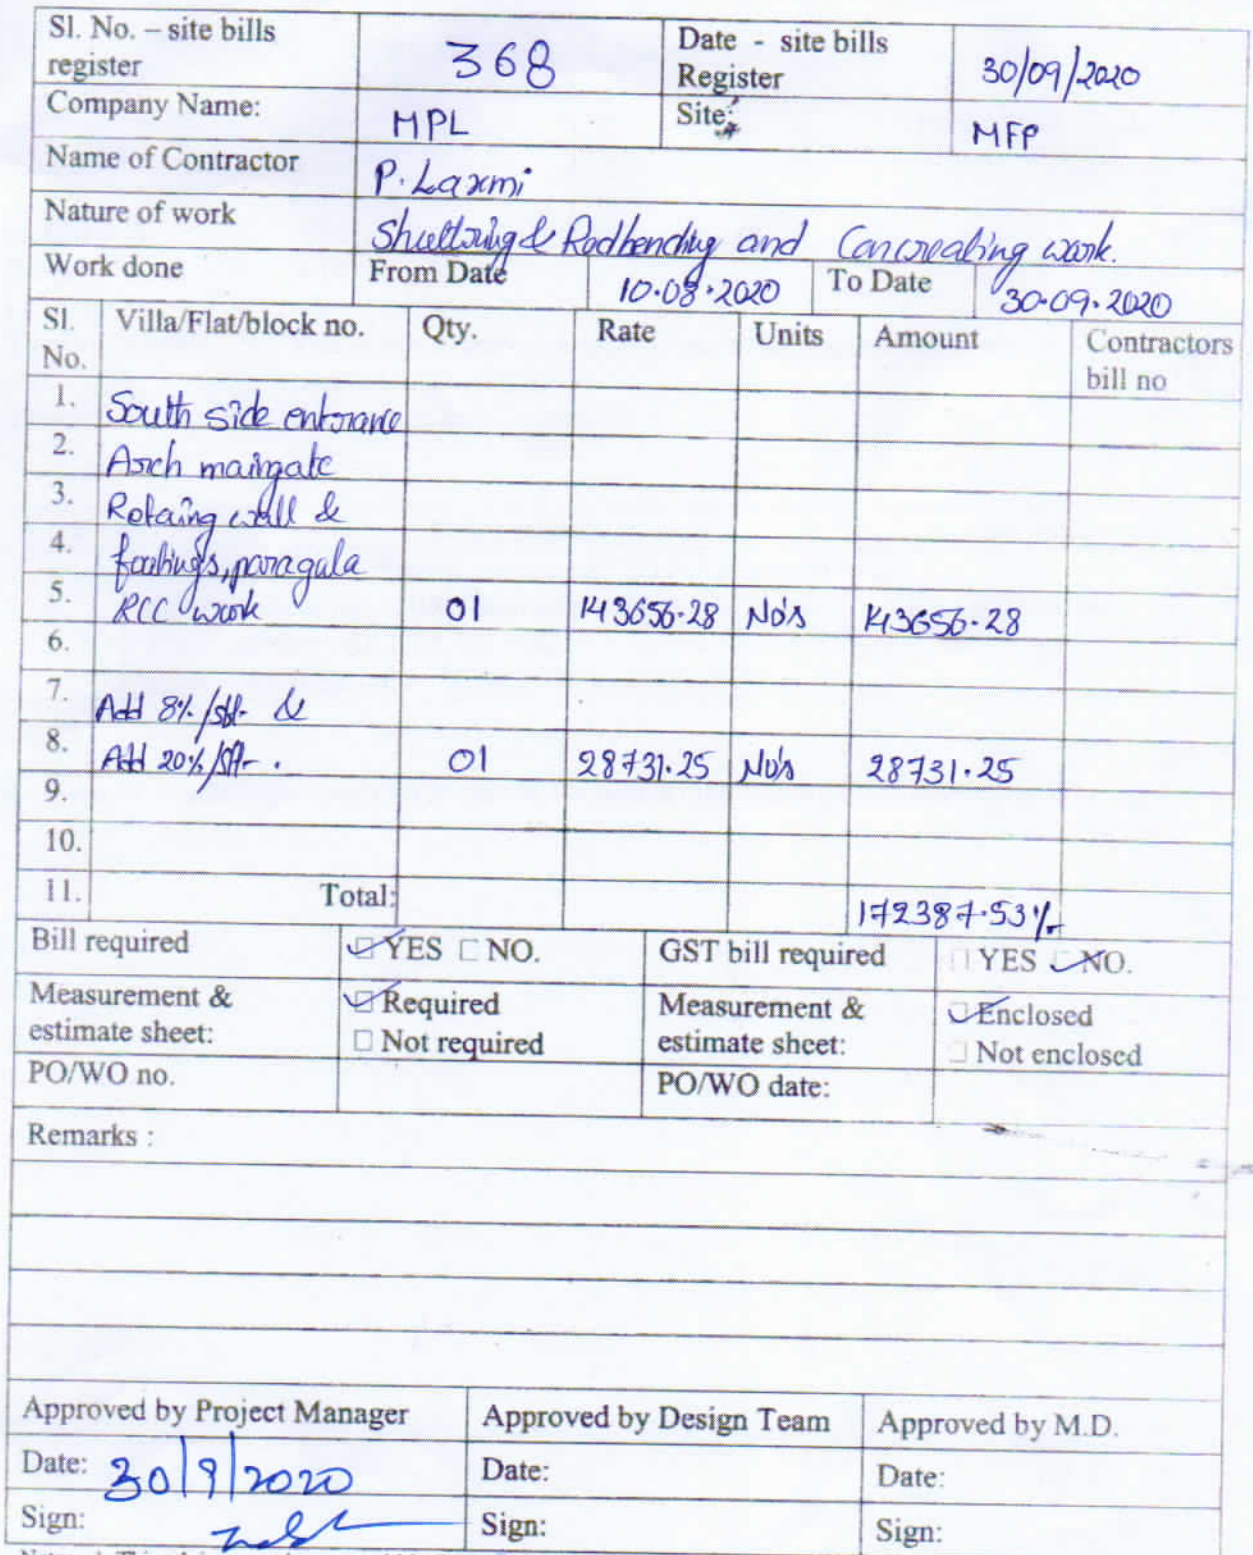 Sl. No. – site bills register 368 Date - site bills Register 30/09/2020
Company Name: MPL Site: MFP
Name of Contractor P. Laxmi
Nature of work Shuttoring & Rodbending and Concreating work.
Work done From Date 10.08.2020 To Date 30.09.2020
Sl. No. Villa/Flat/block no. Qty. Rate Units Amount Contractors bill no
1. South side entrance
2. Arch maingate
3. Retaing wall &
4. footing's, paragala
5. RCC work 01 143656.28 No's 143656.28
6.
7. Add 8% /sft- &
8. Add 20% /sft- . 01 28731.25 No's 28731.25
9.
10.
11. Total: 172387.53/-
Bill required YES NO. GST bill required YES NO.
Measurement & estimate sheet: Required Not required Measurement & estimate sheet: Enclosed Not enclosed
PO/WO no. PO/WO date:
Remarks :
Approved by Project Manager Approved by Design Team Approved by M.D.
Date: 30/9/2020 Date: Date:
Sign: Sign: Sign: